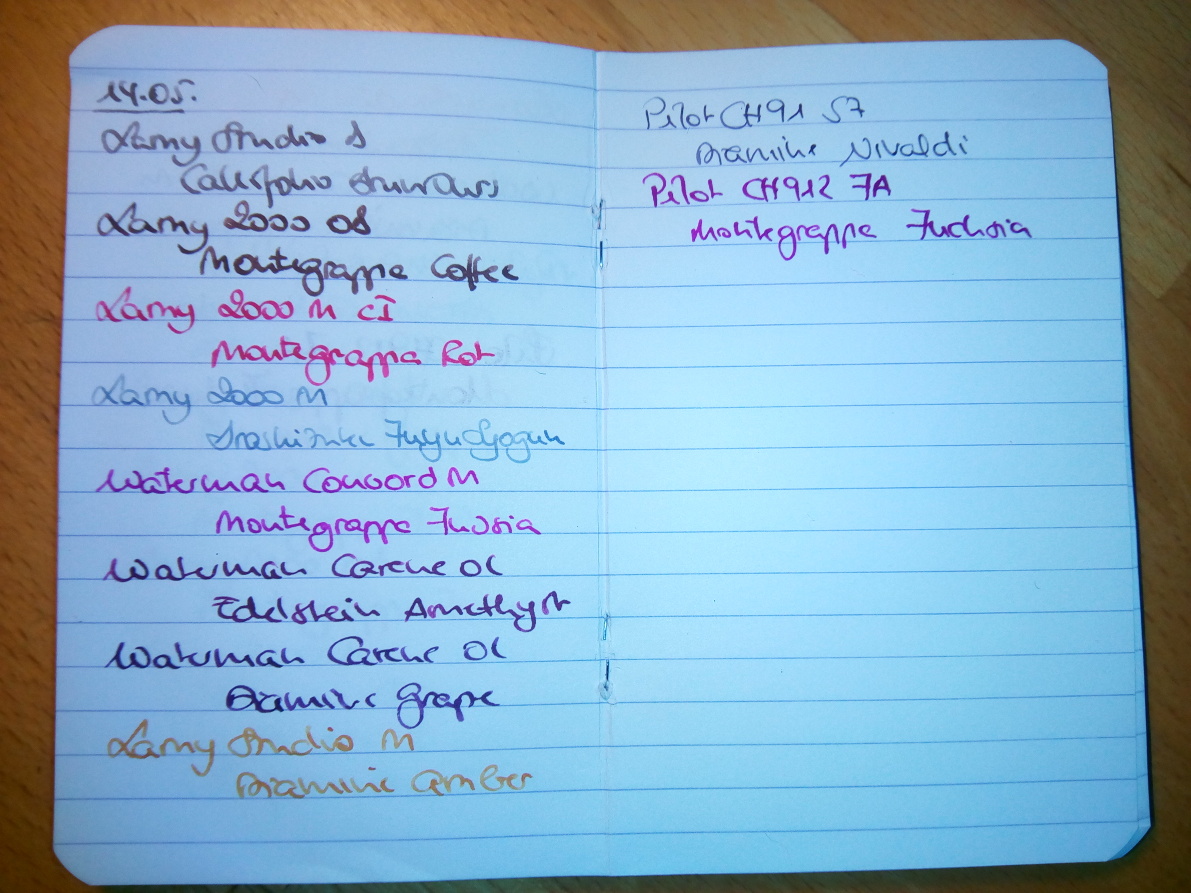 14.05.
Lamy Studio B
Callifolio
Lamy 2000 OB
Montegrappa Coffee
Lamy 2000 M CI
Montegrappa Rot
Lamy 2000 M
Fuyu Syogun
Waterman Concord M
Montegrappa Fucsia
Waterman Carene OC
Edelstein Amethyst
Waterman Carene OC
Diamine Grape
Lamy Studio M
Diamine Amber
Pilot CH91 SF
Diamine Vivaldi
Pilot CH912 FA
Montegrappa Fuchsia